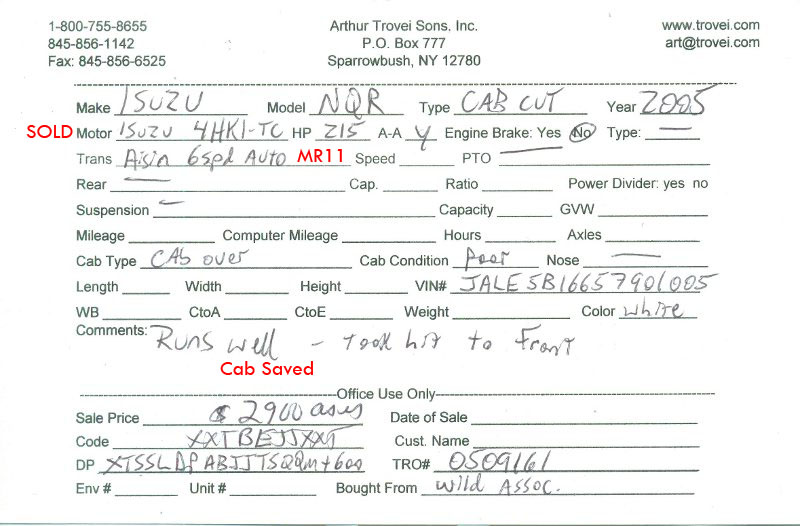 1-800-755-8655 Arthur Trovei Sons, Inc. www.trovei.com
845-856-1142 P.O. Box 777 art@trovei.com
Fax: 845-856-6525 Sparrowbush, NY 12780
Make ISUZU Model NQR Type CAB CUT Year 2005
SOLD Motor ISUZU 4HK1-TC HP 215 A-A Y Engine Brake: Yes No Type: —
Trans Aisin 6spd Auto MR11 Speed PTO —
Rear — Cap. Ratio Power Divider: yes no
Suspension — Capacity GVW
Mileage Computer Mileage Hours Axles
Cab Type CAb over Cab Condition Poor Nose —
Length Width Height VIN# JALE5B16657901005
WB CtoA CtoE Weight Color white
Comments: Runs well - Took hit to Front
Cab Saved
Office Use Only
Sale Price $2900 as is Date of Sale
Code XXTBEJJXXT Cust. Name
DP TRO# 0509161
Env # Unit # Bought From Wild Assoc.